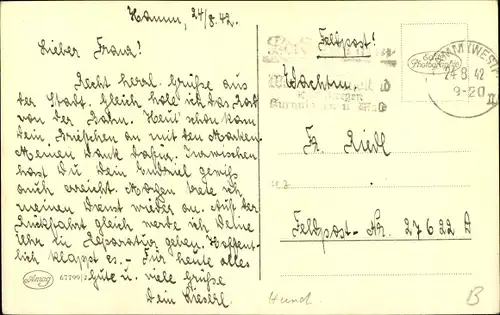 Hamm, 24/8.42.
Lieber Franz!
Recht herzl. Grüße aus
der Stadt. Gleich hole ich das Rad
von der Bahn. Heut' schon kam
Dein Briefchen an mit den Marken.
Meinen Dank dafür. Inzwischen
hast Du Dein Endziel gewiß
auch erreicht. Morgen trete ich
meinen Dienst wieder an. Auf der
Rückfahrt gleich werde ich Deine
Uhr in Reparatur geben. Hoffent-
lich klappt es.- Für heute alles
Gute u. viele Grüße
Dein Wieserl.
Amag
Feldpost!
Wachtm.
Fz. Riedl
Feldpost-Nr. 27622 D
HAMM (WESTF)
24.8.42
9-20
Echte Photographie
B